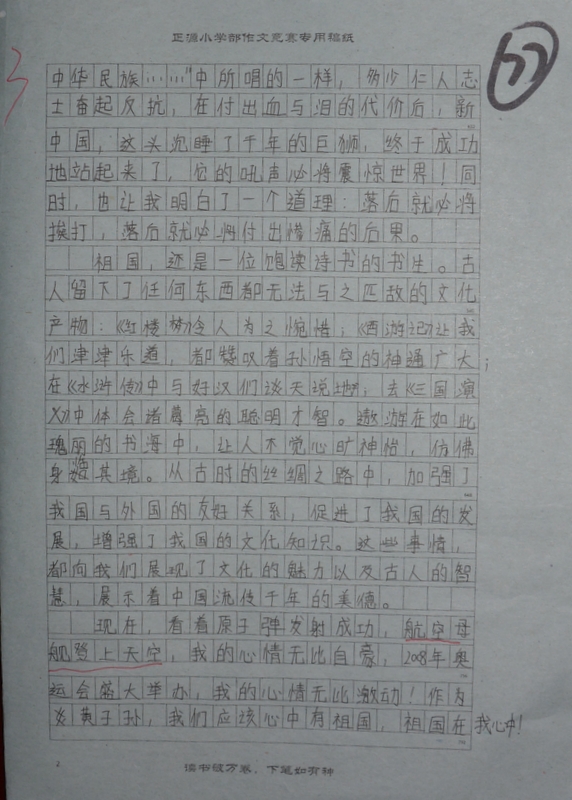 正源小学部作文竞赛专用稿纸
中华民族……"中所唱的一样，多少仁人志
士奋起反抗，在付出血与泪的代价后，新
中国，这头沉睡了千年的巨狮，终于成功
地站起来了，它的吼声必将震惊世界！同
时，也让我明白了一个道理：落后就必将
挨打，落后就必将付出惨痛的后果。
祖国，还是一位饱读诗书的书生。古
人留下了任何东西都无法与之匹敌的文化
产物：《红楼梦》令人为之惋惜；《西游记》让我
们津津乐道，都赞叹着孙悟空的神通广大；
在《水浒传》中与好汉们谈天说地；去《三国演
义》中体会诸葛亮的聪明才智。遨游在如此
瑰丽的书海中，让人不觉心旷神怡，仿佛
身临其境。从古时的丝绸之路中，加强了
我国与外国的友好关系，促进了我国的发
展，增强了我国的文化知识。这些事情，
都向我们展现了文化的魅力以及古人的智
慧，展示着中国流传千年的美德。
现在，看着原子弹发射成功，航空母
舰登上天空，我的心情无比自豪，2008年奥
运会盛大举办，我的心情无比激动！作为
炎黄子孙，我们应该心中有祖国，祖国在我心中！
2
读书破万卷，下笔如有神